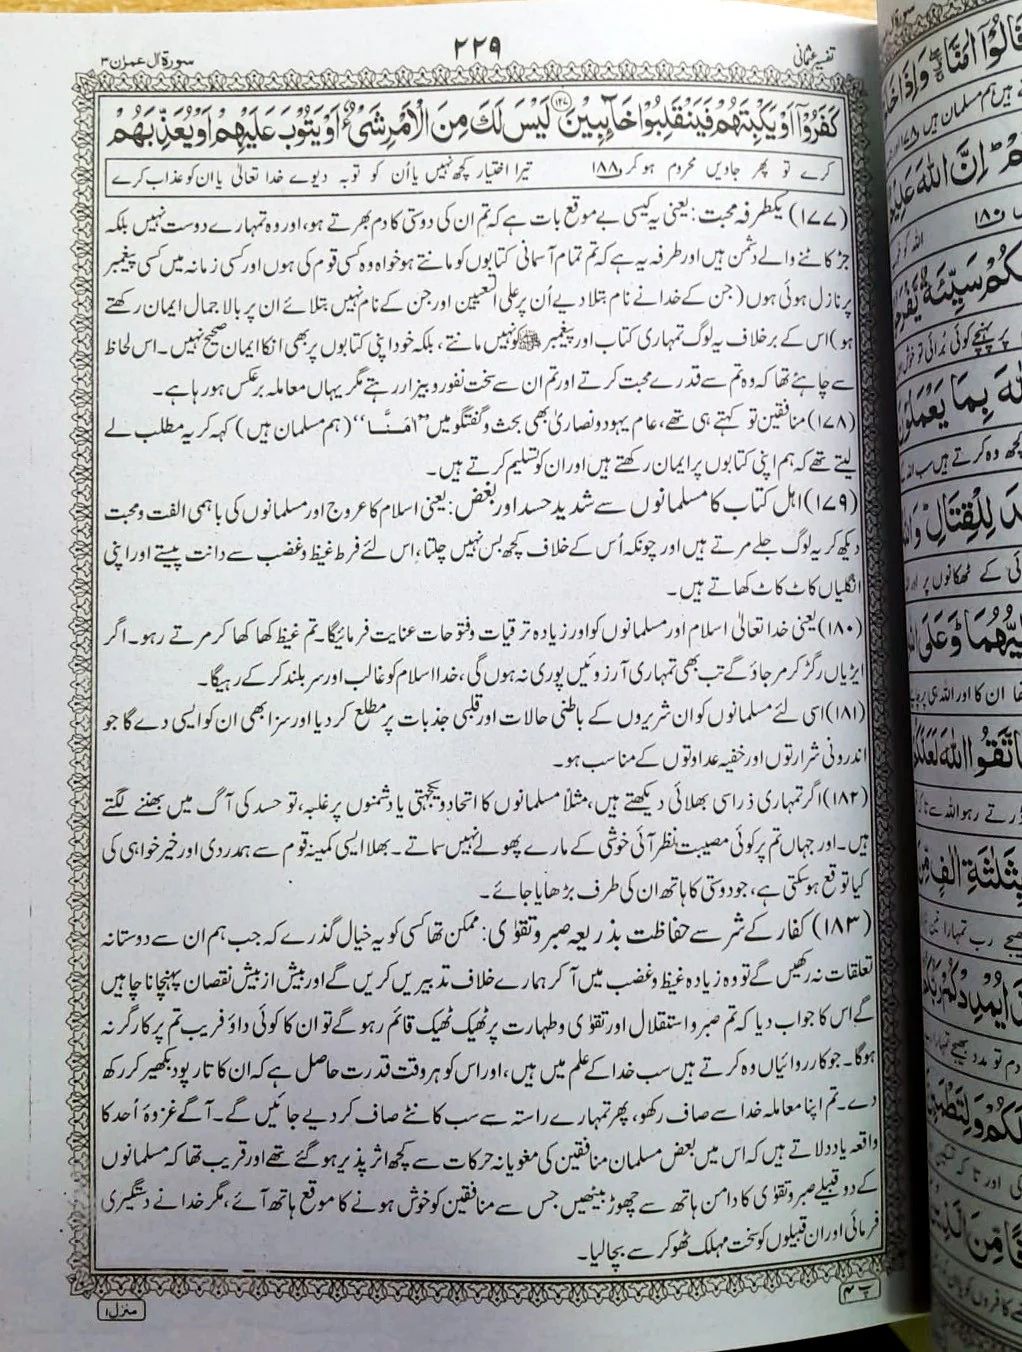 تفسیر عثمانی
۲۲۹
سورۃ آل عمران ۳
كَفَرُوْۤا اَوْ یَكْبِتَهُمْ فَیَنْقَلِبُوْا خَآىِٕبِیْنَ ﴿۱۲۷﴾ لَیْسَ لَكَ مِنَ الْاَمْرِ شَیْءٌ اَوْ یَتُوْبَ عَلَیْهِمْ اَوْ یُعَذِّبَهُمْ
کرے تو پھر جاویں محروم ہو کر ۱۸۸ تیرا اختیار کچھ نہیں یا اُن کو توبہ دیوے خدا تعالیٰ یا ان کو عذاب کرے
(۱۷۷) یکطرفہ محبت: یعنی یہ کیسی بے موقع بات ہے کہ تم ان کی دوستی کا دم بھرتے ہو، اور وہ تمہارے دوست نہیں بلکہ
جڑ کاٹنے والے دشمن ہیں اور طرفہ یہ ہے کہ تم تمام آسمانی کتابوں کو مانتے ہو خواہ وہ کسی قوم کی ہوں اور کسی زمانہ میں کسی پیغمبر
پر نازل ہوئی ہوں (جن کے خدا نے نام بتلا دیے اُن پر علی التعیین اور جن کے نام نہیں بتلائے ان پر بالاجمال ایمان رکھتے
ہو) اس کے برخلاف یہ لوگ تمہاری کتاب اور پیغمبر ﷺ کو نہیں مانتے، بلکہ خود اپنی کتابوں پر بھی انکا ایمان صحیح نہیں۔ اس لحاظ
سے چاہئے تھا کہ وہ تم سے قدرے محبت کرتے اور تم ان سے سخت نفور و بیزار رہتے مگر یہاں معاملہ برعکس ہو رہا ہے۔
(۱۷۸) منافقین تو کہتے ہی تھے، عام یہود و نصاریٰ بھی بحث و گفتگو میں ”اٰمَنَّا“ (ہم مسلمان ہیں) کہہ کر یہ مطلب لے
لیتے تھے کہ ہم اپنی کتابوں پر ایمان رکھتے ہیں اور ان کو تسلیم کرتے ہیں۔
(۱۷۹) اہل کتاب کا مسلمانوں سے شدید حسد اور بغض: یعنی اسلام کا عروج اور مسلمانوں کی باہمی الفت و محبت
دیکھ کر یہ لوگ جلے مرتے ہیں اور چونکہ اُس کے خلاف کچھ بس نہیں چلتا، اس لئے فرط غیظ و غضب سے دانت پیستے اور اپنی
انگلیاں کاٹ کاٹ کھاتے ہیں۔
(۱۸۰) یعنی خدا تعالیٰ اسلام اور مسلمانوں کو اور زیادہ ترقیات و فتوحات عنایت فرمائیگا۔ تم غیظ کھا کھا کر مرتے رہو۔ اگر
ایڑیاں رگڑ کر مر جاؤ گے تب بھی تمہاری آرزوئیں پوری نہ ہوں گی، خدا اسلام کو غالب اور سربلند کر کے رہیگا۔
(۱۸۱) اسی لئے مسلمانوں کو ان شریروں کے باطنی حالات اور قلبی جذبات پر مطلع کر دیا اور سزا بھی ان کو ایسی دے گا جو
اندرونی شرارتوں اور خفیہ عداوتوں کے مناسب ہو۔
(۱۸۲) اگر تمہاری ذرا سی بھلائی دیکھتے ہیں، مثلاً مسلمانوں کا اتحاد و یکجہتی یا دشمنوں پر غلبہ، تو حسد کی آگ میں بھننے لگتے
ہیں۔ اور جہاں تم پر کوئی مصیبت نظر آئی خوشی کے مارے پھولے نہیں سماتے۔ بھلا ایسی کمینہ قوم سے ہمدردی اور خیر خواہی کی
کیا توقع ہو سکتی ہے، جو دوستی کا ہاتھ ان کی طرف بڑھایا جائے۔
(۱۸۳) کفار کے شر سے حفاظت بذریعہ صبر و تقوٰی: ممکن تھا کسی کو یہ خیال گذرے کہ جب ہم ان سے دوستانہ
تعلقات نہ رکھیں گے تو وہ زیادہ غیظ و غضب میں آ کر ہمارے خلاف تدبیریں کریں گے اور بیش از بیش نقصان پہنچانا چاہیں
گے اس کا جواب دیا کہ تم صبر و استقلال اور تقوٰی و طہارت پر ٹھیک ٹھیک قائم رہو گے تو ان کا کوئی داؤ فریب تم پر کارگر نہ
ہوگا۔ جو کارروائیاں وہ کرتے ہیں سب خدا کے علم میں ہیں، اور اس کو ہر وقت قدرت حاصل ہے کہ ان کا تار پود بکھیر کر رکھ
دے۔ تم اپنا معاملہ خدا سے صاف رکھو، پھر تمہارے راستہ سے سب کانٹے صاف کر دیے جائیں گے۔ آگے غزوۂ اُحد کا
واقعہ یاد دلاتے ہیں کہ اس میں بعض مسلمان منافقین کی مغویانہ حرکات سے کچھ اثر پذیر ہو گئے تھے اور قریب تھا کہ مسلمانوں
کے دو قبیلے صبر و تقوٰی کا دامن ہاتھ سے چھوڑ بیٹھیں جس سے منافقین کو خوش ہونے کا موقع ہاتھ آئے، مگر خدا نے دستگیری
فرمائی اور ان قبیلوں کو سخت مہلک ٹھوکر سے بچا لیا۔
پ ۴
منزل ۱